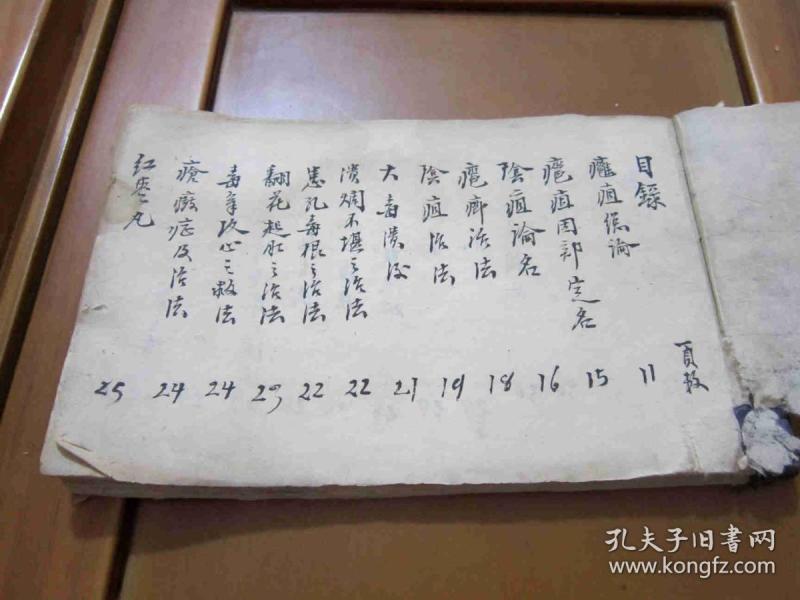 目錄
癰疽總論
癰疽因部定名
陰疽論名
癰癤治法
陰疽治法
大毒潰後
潰爛不堪之治法
患孔毒根之治法
翻花起肛之治法
毒氣攻心之救法
瘡癥症及治法
红枣丸
頁数
11
15
16
18
19
21
22
22
23
24
24
25
孔夫子旧书网
www.kongfz.com